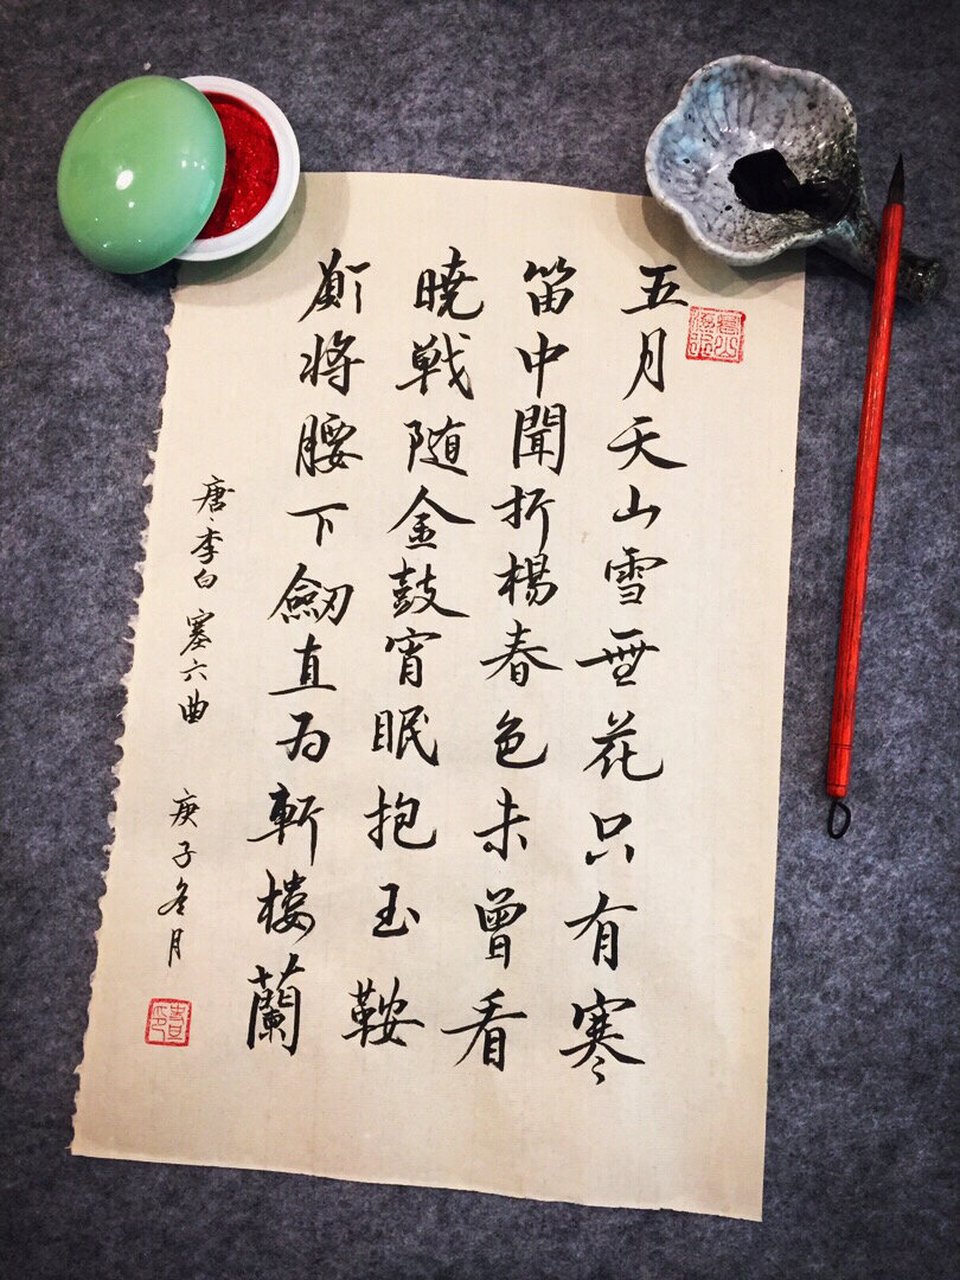 五月天山雪無花只有寒
笛中聞折楊春色未曾看
暁戦随金鼓宵眠抱玉鞍
願将腰下劒直为斬楼蘭
唐、李白 塞六曲 庚子冬月